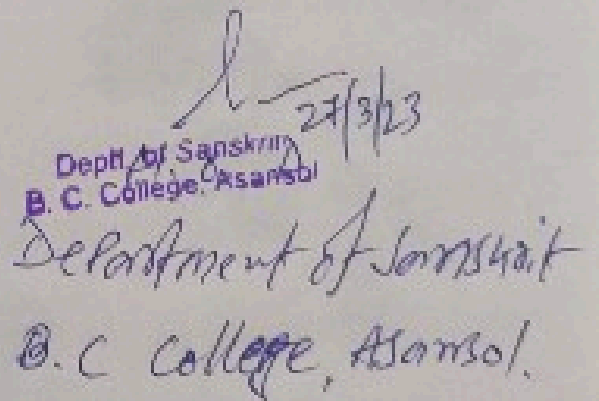 27/3/23
Deptt. of Sanskrit
B. C. College, Asansol
Department of Sanskrit
B.C College, Asansol.